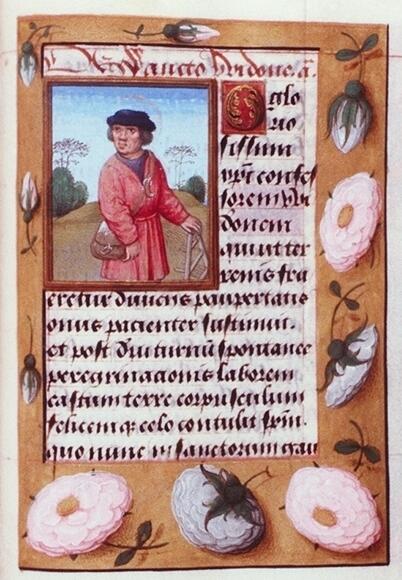 De Sancto Drudone. a.
O glo
rio
sissimum
xp̄i confes
sorem Dru
donem
qui ut ter
renis fru
eretur diuiciis paupertatis
onus pacienter sustinuit.
et post diuturnū spontanee
peregrinacionis laborem
castum terre corpusculum
felicem q; celo contulit spm̄.
quo nunc in sanctorum